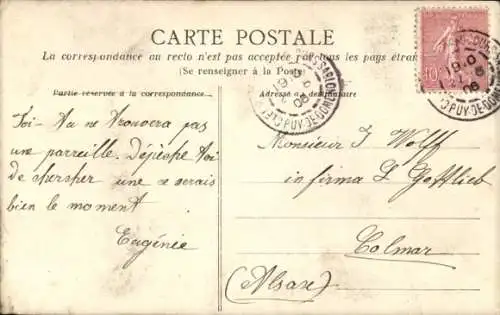 CARTE POSTALE
La correspondance au recto n'est pas acceptée par tous les pays étran
(Se renseigner à la Poste)
Partie réservée à la correspondance
Adresse du destinataire
Toi - Tu ne trouvera pas
une parreille. Dépèche toi
de chercher une ce serais
bien le moment
Eugénie
Monsieur J. Wolff
in firma L. Gottlieb
Colmar
(Alsace)
10
PUY-DE-DÔME